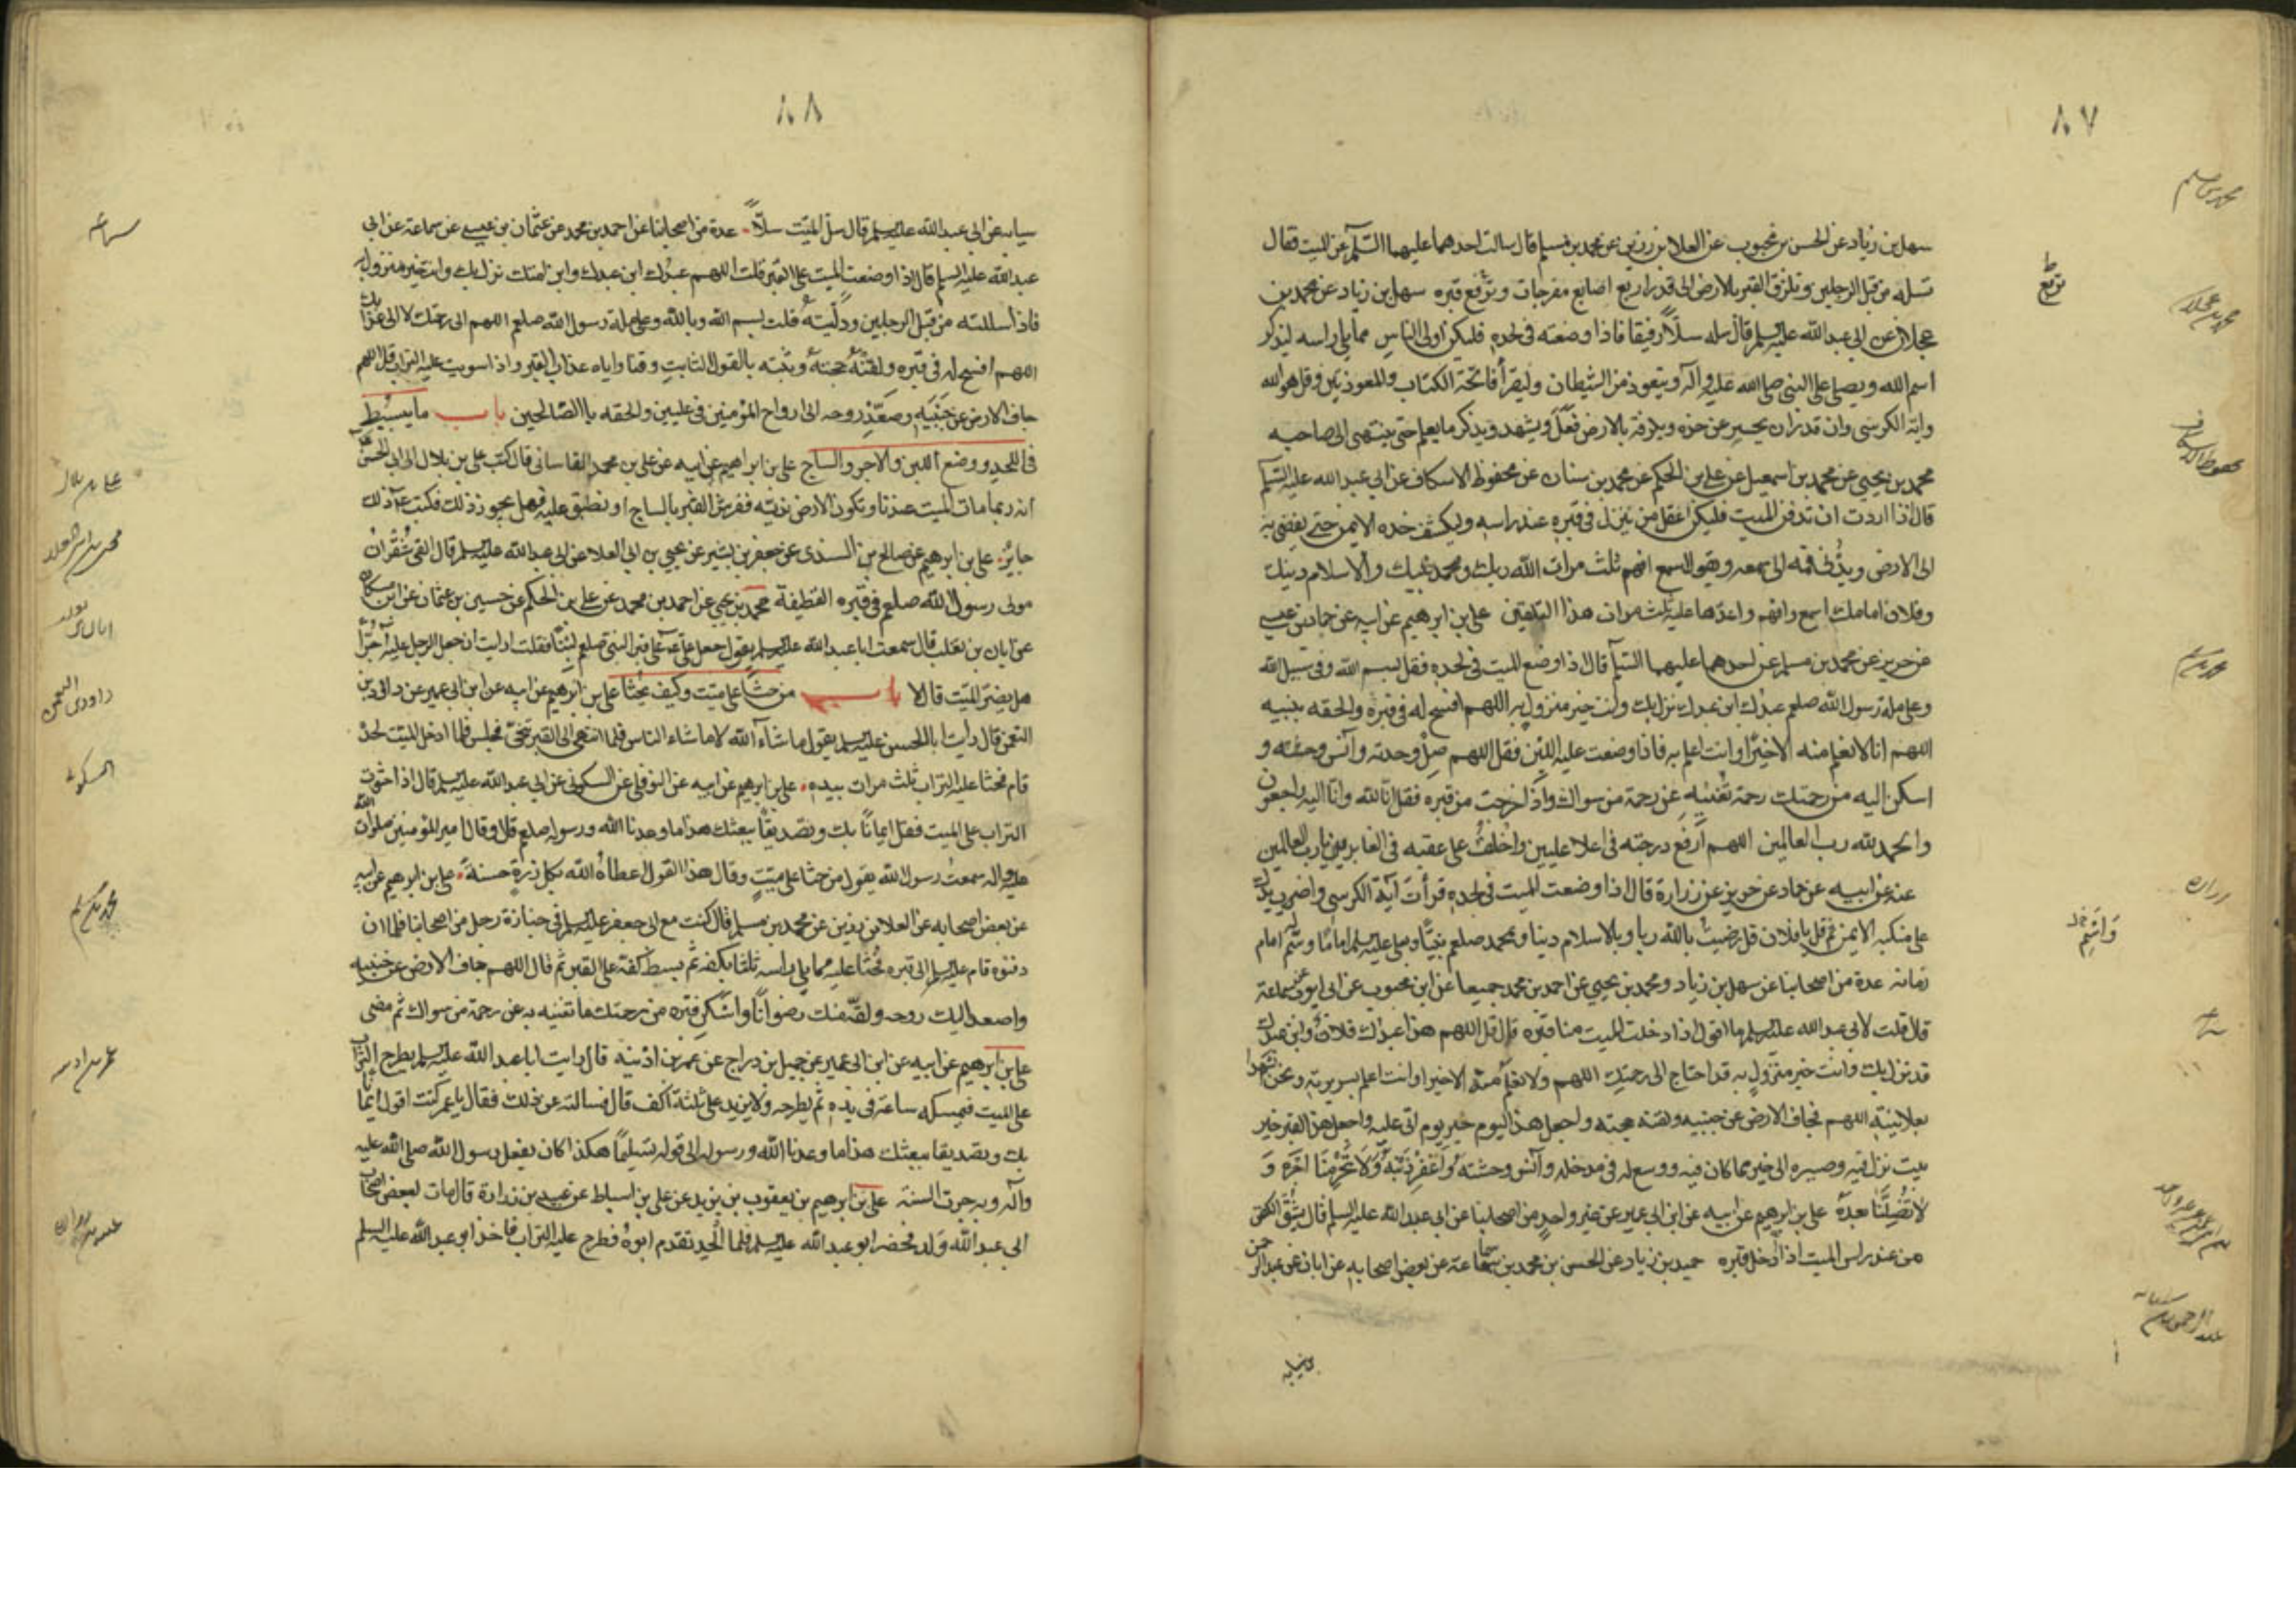 ٨٧
سهل بن زياد عن الحسن بن محبوب عن العلا بن رزين عن محمد بن مسلم قال سالت احدهما عليهما السلم عن الميت فقال
تسله من قبل الرجلين وتلزق القبر بالارض الى قدر اربع اصابع مفرجات وترفع قبره سهل بن زياد عن محمد بن
عجلان عن ابى عبدالله عليه السلم قال سله سلا رفيقا فاذا وضعته فى لحده فليكن اولى الناس مما يلى راسه ليذكر
اسم الله ويصلى على النبى صلى الله عليه وآله ويتعوذ من الشيطان وليقرأ فاتحة الكتاب والمعوذتين وقل هو الله
واية الكرسى وان قدر ان يحسر عن خده ويلزقه بالارض فعل ويشهد ويذكر ما يعلم حتى ينتهى الى صاحبه
محمد بن يحيى عن محمد بن اسمعيل عن على بن الحكم عن محمد بن سنان عن محفوظ الاسكاف عن ابى عبدالله عليه السلم
قال اذا اردت ان تدفن الميت فليكن اعقل من ينزل فى قبره عند راسه وليكشف خده الايمن حتى يفضى به
الى الارض ويدنى فمه الى سمعه ويقول اسمع افهم ثلث مرات الله ربك ومحمد نبيك والاسلام دينك
وفلان امامك اسمع وافهم واعدها عليه ثلث مرات هذا التلقين على بن ابرهيم عن ابيه عن حماد بن عيسى
عن حريز عن محمد بن مسلم عن احدهما عليهما السلم قال اذا وضع الميت فى لحده فقل بسم الله وفى سبيل الله
وعلى ملة رسول الله صلعم عبدك ابن عبدك نزل بك وانت خير منزول به اللهم افسح له فى قبره والحقه بنبيه
اللهم انا لا نعلم منه الا خيرا وانت اعلم به فاذا وضعت عليه اللبن فقل اللهم صل وحدته وآنس وحشته و
اسكن اليه من رحمتك رحمة تغنيه عن رحمة من سواك واذا خرجت من قبره فقل انا لله وانا اليه راجعون
والحمد لله رب العالمين اللهم ارفع درجته فى اعلا عليين واخلف على عقبه فى الغابرين يا رب العالمين
عنه عن ابيه عن حماد عن حريز عن زرارة قال اذا وضعت الميت فى لحده قرأت آية الكرسى واضرب يدك
على منكبه الايمن ثم قل يا فلان قل رضيت بالله ربا وبالاسلام دينا وبمحمد صلعم نبيا وبعلى عليه السلم اماما وسم امام
زمانه عدة من اصحابنا عن سهل بن زياد ومحمد بن يحيى عن احمد بن محمد جميعا عن ابن محبوب عن ابى ايوب عن سماعة
قال قلت لابى عبدالله عليه السلم ما اقول اذا ادخلت الميت منا قبره قال قل اللهم هذا عبدك فلان وابن عبدك
قد نزل بك وانت خير منزول به قد احتاج الى رحمتك اللهم ولا نعلم منه الا خيرا وانت اعلم بسريرته ونحن الشهدا
بعلانيته اللهم فجاف الارض عن جنبيه ولقنه حجته واجعل هذا اليوم خير يوم اتى عليه واجعل هذا القبر خير
بيت نزل فيه وصيره الى خير مما كان فيه ووسع له فى مدخله وآنس وحشته واغفر ذنبه ولا تحرمنا اجره و
لا تضلنا بعده على بن ابرهيم عن ابيه عن ابن ابى عمير عن غير واحد من اصحابنا عن ابى عبدالله عليه السلم قال يشق الكفن
من عند راس الميت اذا ادخل قبره حميد بن زياد عن الحسن بن محمد بن سماعة عن بعض اصحابه عن ابان عن عبدالرحمن
محمد بن مسلم
محمد بن عجلان
محفوظ الاسكاف
محمد بن مسلم
زرارة
واسم
سماعة
٨٨
سيابه عن ابى عبدالله عليه السلم قال سل الميت سلا عدة من اصحابنا عن احمد بن محمد عن عثمان بن عيسى عن سماعة عن ابى
عبدالله عليه السلم قال اذا وضعت الميت على القبر قلت اللهم عبدك ابن عبدك وابن امتك نزل بك وانت خير منزول به
فاذا سللته من قبل الرجلين ودليته قلت بسم الله وبالله وعلى ملة رسول الله صلعم اللهم الى رحمتك لا الى عذابك
اللهم افسح له فى قبره ولقنه حجته وثبته بالقول الثابت وقنا واياه عذاب القبر واذا سويت عليه التراب قل اللهم
جاف الارض عن جنبيه وصعد روحه الى ارواح المؤمنين فى عليين والحقه بالصالحين باب ما يبسط
فى اللحد ووضع اللبن والاجر والساج على بن ابراهيم عن ابيه عن على بن محمد القاسانى قال كتب على بن بلال الى ابى الحسن
انه ربما مات الميت عندنا وتكون الارض ندية ففرش القبر بالساج او نطبق عليه فهل يجوز ذلك فكتب ذلك
جايز على بن ابرهيم عن صالح بن السندى عن جعفر بن بشير عن يحيى بن ابى العلا عن ابى عبدالله عليه السلم قال القى شقران
مولى رسول الله صلعم فى قبره القطيفة محمد بن يحيى عن احمد بن محمد عن على بن الحكم عن حسين بن عثمان عن ابن مسكان
عن ابان بن تغلب قال سمعت ابا عبدالله عليه السلم يقول جعل على على قبر النبى صلعم لبنا فقلت ارايت ان جعل الرجل عليه آجرا
هل يضر الميت قال لا باب من حثا على ميت وكيف يحثا على بن ابرهيم عن ابيه عن ابن ابى عمير عن داود بن
النعمن قال رايت ابا الحسن عليه السلم يقول ما شاء الله لا ما شاء الناس فلما انتهى الى القبر تنحى فجلس فلما ادخل الميت لحده
قام فحثا عليه التراب ثلث مرات بيده على بن ابرهيم عن ابيه عن النوفلى عن السكونى عن ابى عبدالله عليه السلم قال اذا حثوت
التراب على الميت فقل ايمانا بك وتصديقا ببعثك هذا ما وعدنا الله ورسوله صلعم قال وقال امير المؤمنين صلوات الله
عليه واله سمعت رسول الله يقول من حثا على ميت وقال هذا القول اعطاه الله بكل ذرة حسنة على بن ابرهيم عن ابيه
عن بعض اصحابه عن العلا بن رزين عن محمد بن مسلم قال كنت مع ابى جعفر عليه السلم فى جنازة رجل من اصحابنا فلما ان
دفنوه قام عليه السلم الى قبره فحثا عليه مما يلى راسه ثلثا بكفه ثم بسط كفه على القبر ثم قال اللهم جاف الارض عن جنبيه
واصعد اليك روحه ولقه منك رضوانا واسكن قبره من رحمتك ما تغنيه به عن رحمة من سواك ثم مضى
على بن ابرهيم عن ابيه عن ابن ابى عمير عن جميل بن دراج عن عمر بن اذينه قال رايت ابا عبدالله عليه السلم يطرح التراب
على الميت فيمسكه ساعة فى يده ثم يطرحه ولا يزيد على ثلثة اكف قال فسالته عن ذلك فقال يا عمر كنت اقول ايمانا
بك وتصديقا ببعثك هذا ما وعدنا الله ورسوله الى قوله تسليما هكذا كان يفعل رسول الله صلى الله عليه
وآله وبه جرت السنة على بن ابرهيم بن يعقوب بن يزيد عن على بن اسباط عن عبيد بن زرارة قال مات لبعض اصحاب
ابى عبدالله ولد فحضر ابو عبدالله عليه السلم فلما الحد تقدم ابوه فطرح عليه التراب فاخذ ابو عبدالله عليه السلم
سماعة
على بن بلال
ابان بن تغلب
داود بن النعمن
السكونى
محمد بن مسلم
عمر بن اذينه
عبيد بن زرارة